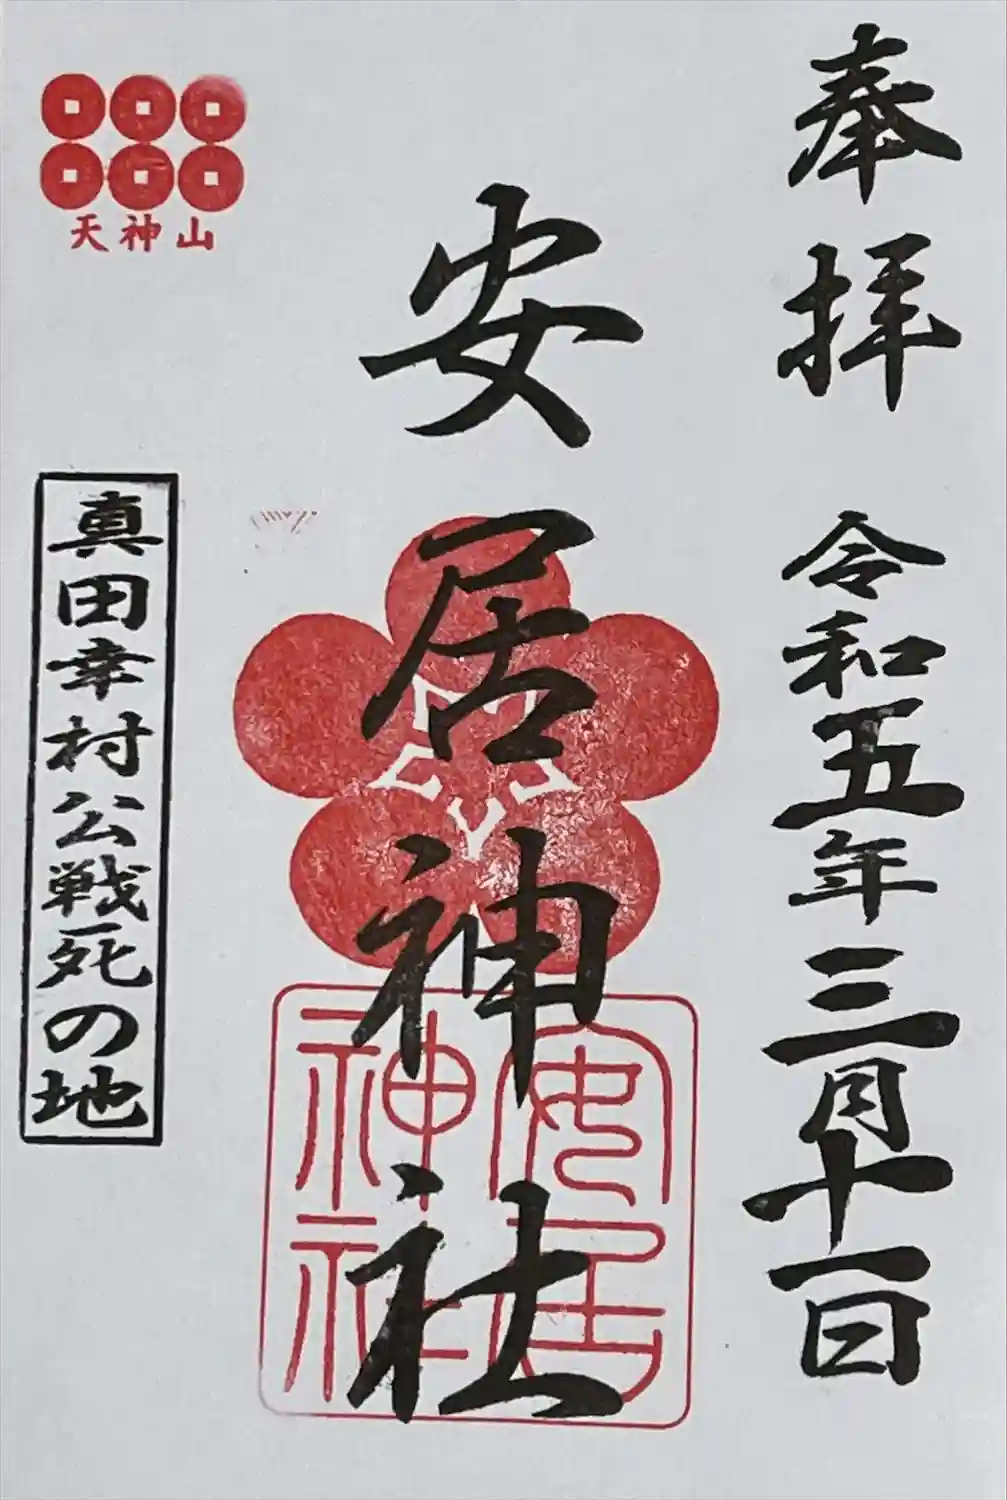 奉拝
令和五年三月十一日
安居神社
安居
神社
天神山
真田幸村公戦死の地